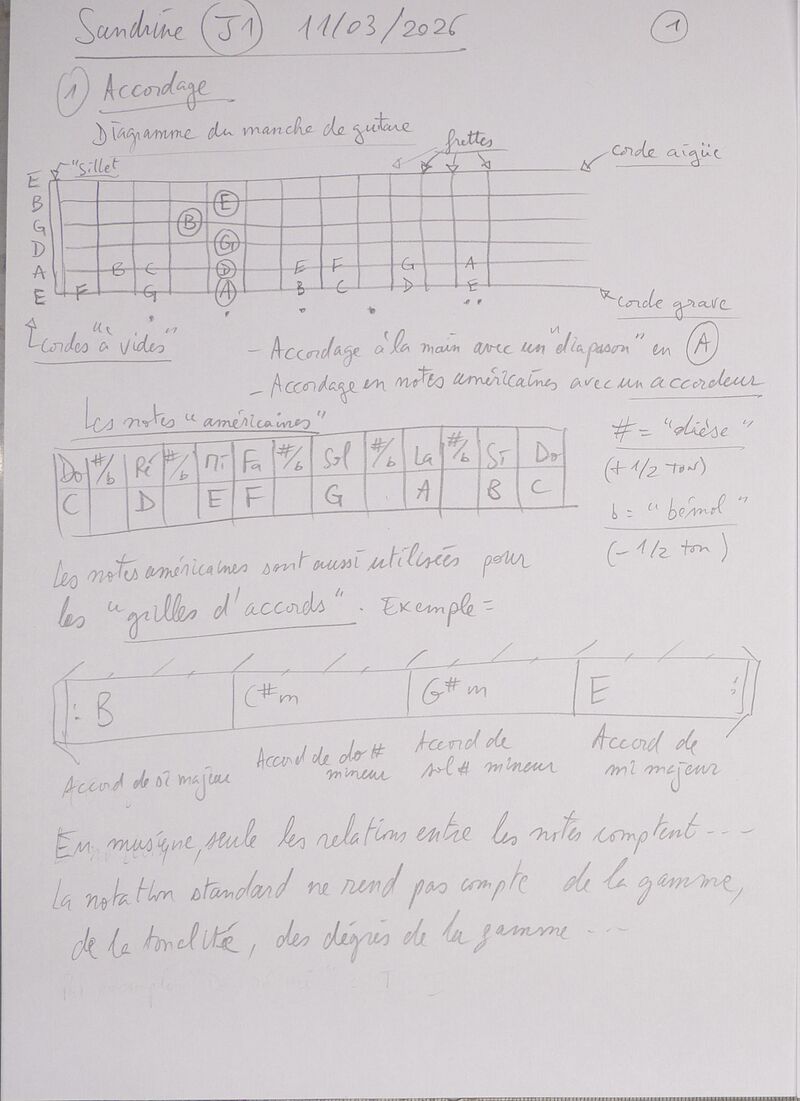 Sandrine J1 11/03/2026 1
1 Accordage
Diagramme du manche de guitare
frettes
"Sillet
corde aigüe
E
B E
G B
D G
A B C D E F G A
E F G A B C D E
corde grave
Cordes "à vides"
- Accordage à la main avec un "diapason" en A
- Accordage en notes américaines avec un accordeur
Les notes "américaines"
Do #/b Ré #/b Mi Fa #/b Sol #/b La #/b Si Do
C D E F G A B C
# = "dièse"
(+ 1/2 ton)
b = "bémol"
(- 1/2 ton)
Les notes américaines sont aussi utilisées pour
les "grilles d'accords". Exemple =
B C#m G#m E
Accord de si majeur
Accord de do #
mineur
Accord de
sol # mineur
Accord de
mi majeur
En musique, seule les relations entre les notes comptent ---
La notation standard ne rend pas compte de la gamme,
de la tonalité, des dégrés de la gamme ---